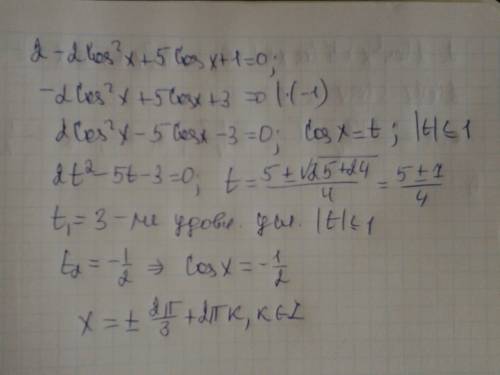 2 - 2cos²x + 5cosx + 1 = 0;
-2cos²x + 5cosx + 3 = 0 | · (-1)
2cos²x - 5cosx - 3 = 0; cosx = t; |t| ≤ 1
2t² - 5t - 3 = 0; t = (5 ± √(25+24))/4 = (5 ± 7)/4
t₁ = 3 - не удовл. усл. |t| ≤ 1
t₂ = -1/2 ⇒ cosx = -1/2
x = ± 2π/3 + 2πк, к ∈ Z